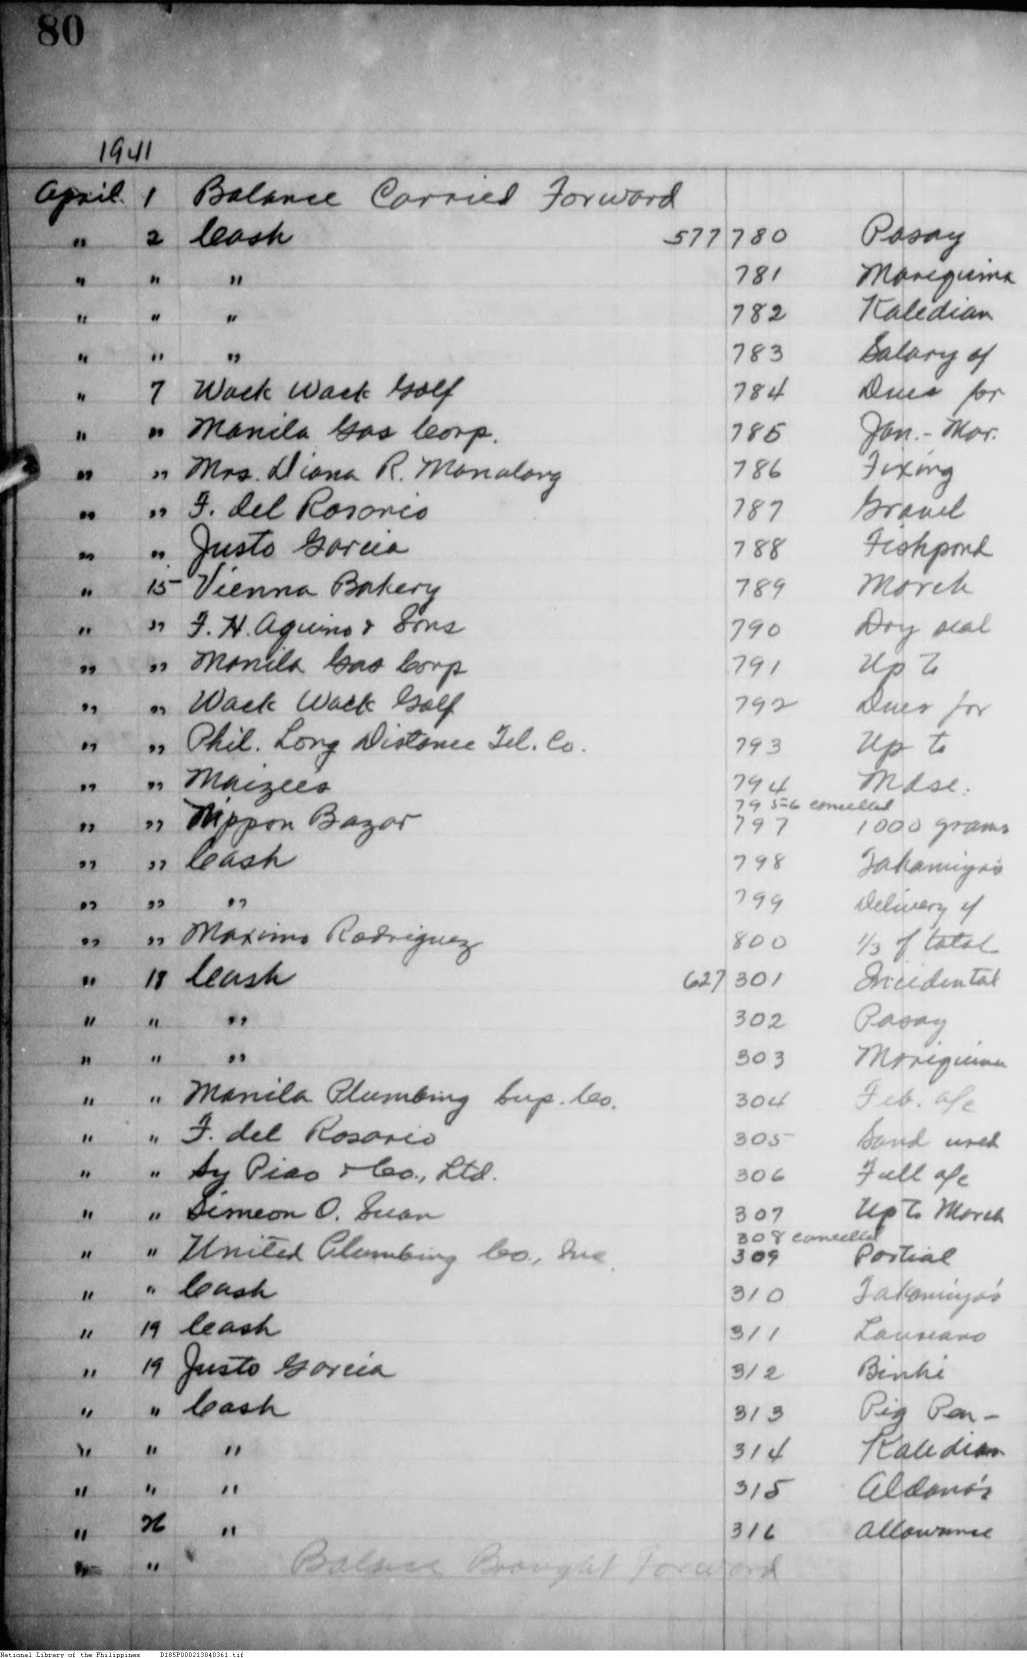 80
1941
April 1 Balance Carried Forward
" 2 Cash 577 780 Pasay
" " " 781 Mariquina
" " " 782 Kaledian
" " " 783 Salary of
" 7 Wack Wack Golf 784 Dues for
" " Manila Gas Corp. 785 Jan. - Mar.
" " Mrs. Diana R. Manalang 786 Fixing
" " F. del Rosario 787 Gravel
" " Justo Garcia 788 Fishpond
" 15 Vienna Bakery 789 March
" " F. H. Aquino & Sons 790 Dry seal
" " Manila Gas Corp 791 Up to
" " Wack Wack Golf 792 Dues for
" " Phil. Long Distance Tel. Co. 793 Up to
" " Maizees 794 Mdse.
795-6 cancelled
" " Nippon Bazar 797 1000 grams
" " Cash 798 Takamiya's
" " " 799 Delivery of
" " Maximo Rodriguez 800 1/3 of total
" 18 Cash 627 301 Incidental
" " " 302 Pasay
" " " 303 Mariquina
" " Manila Plumbing Sup. Co. 304 Feb. a/c
" " F. del Rosario 305 Sand used
" " Sy Piao & Co., Ltd. 306 Full a/c
" " Simeon O. 307 Up to March
308 cancelled
" " United Plumbing Co., Inc. 309 Partial
" " Cash 310 Takamiya's
" 19 Cash 311 Laureano
" 19 Justo Garcia 312 Binhi
" " Cash 313 Pig Pen -
" " " 314 Kaledian
" " " 315 Aldana's
" 26 " 316 Allowance
" " Balance Brought Forward
National Library of the Philippines D185P000213040361.tif